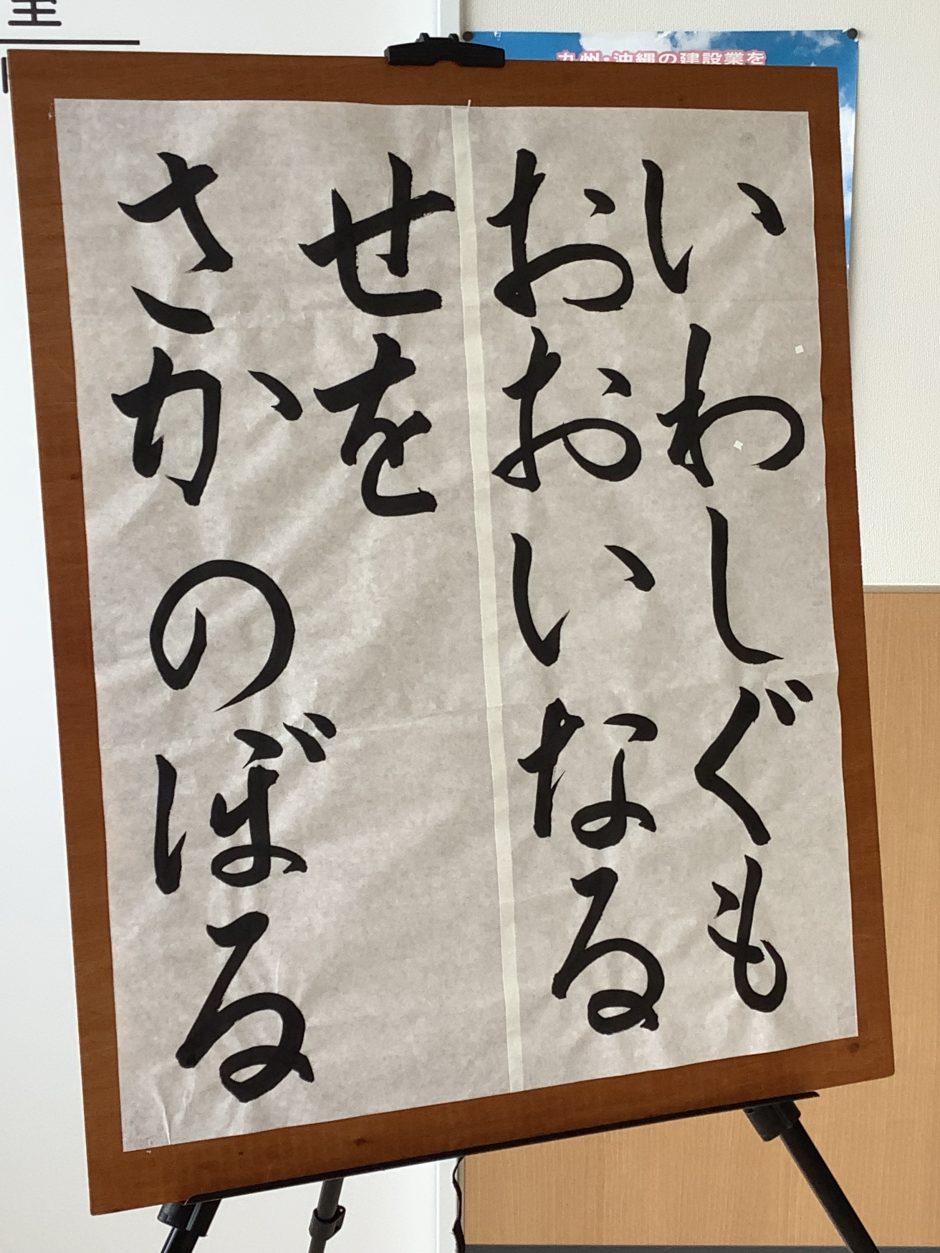 いわしぐも
おおいなる
せを
さかのぼる
九州・沖縄の建設業を
室